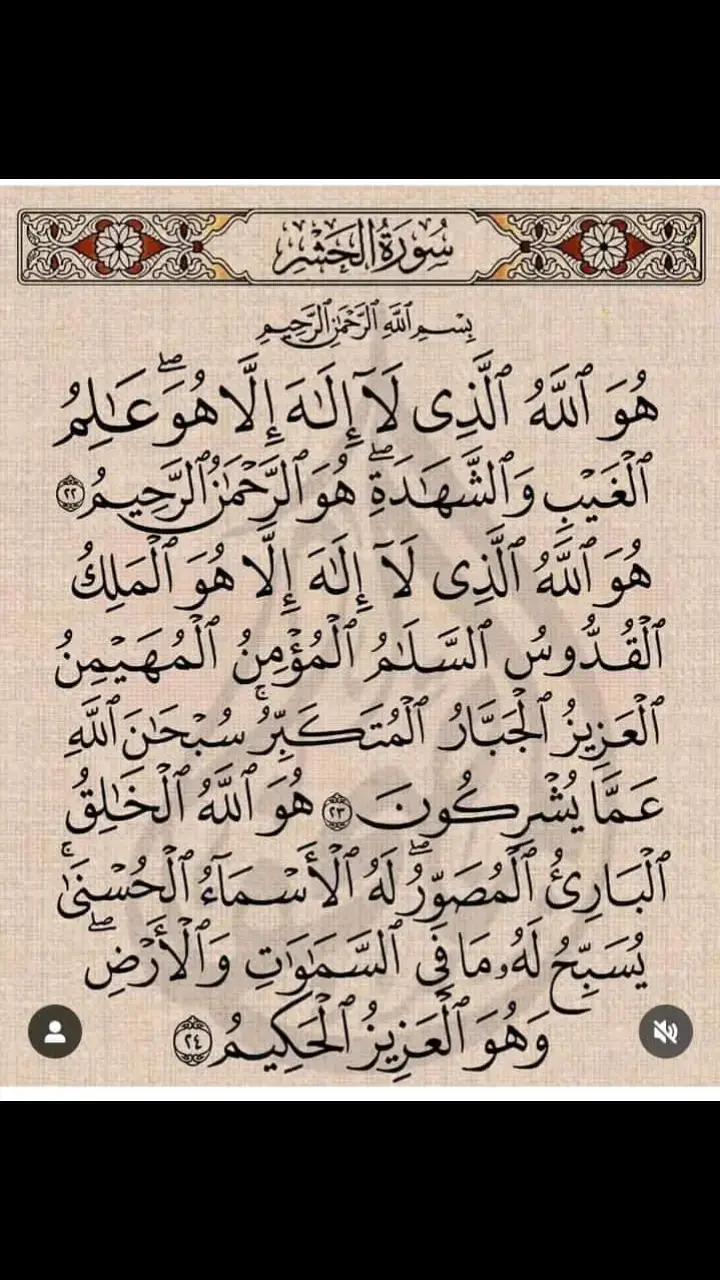 سُورَةُ الحَشْرِ
بِسْمِ ٱللَّهِ ٱلرَّحْمَٰنِ ٱلرَّحِيمِ
هُوَ ٱللَّهُ ٱلَّذِى لَآ إِلَٰهَ إِلَّا هُوَ ۖ عَٰلِمُ
ٱلْغَيْبِ وَٱلشَّهَٰدَةِ ۖ هُوَ ٱلرَّحْمَٰنُ ٱلرَّحِيمُ ٢٢
هُوَ ٱللَّهُ ٱلَّذِى لَآ إِلَٰهَ إِلَّا هُوَ ٱلْمَلِكُ
ٱلْقُدُّوسُ ٱلسَّلَٰمُ ٱلْمُؤْمِنُ ٱلْمُهَيْمِنُ
ٱلْعَزِيزُ ٱلْجَبَّارُ ٱلْمُتَكَبِّرُ ۚ سُبْحَٰنَ ٱللَّهِ
عَمَّا يُشْرِكُونَ ٢٣ هُوَ ٱللَّهُ ٱلْخَٰلِقُ
ٱلْبَارِئُ ٱلْمُصَوِّرُ ۖ لَهُ ٱلْأَسْمَآءُ ٱلْحُسْنَىٰ ۚ
يُسَبِّحُ لَهُۥ مَا فِى ٱلسَّمَٰوَٰتِ وَٱلْأَرْضِ ۖ
وَهُوَ ٱلْعَزِيزُ ٱلْحَكِيمُ ٢٤